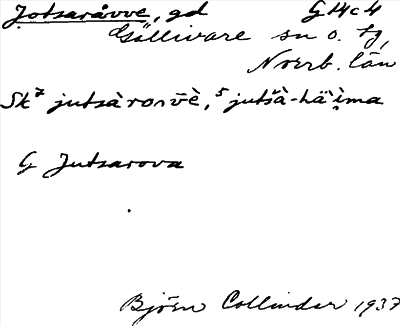 Jotsaråvve, gd G14c4
Gällivare sn o. tg,
Norrb. län
Sk⁷ jutsàrorv̄è, ⁵jutšà-hä̀ima
G Jutsarova
Björn Collinder 1937